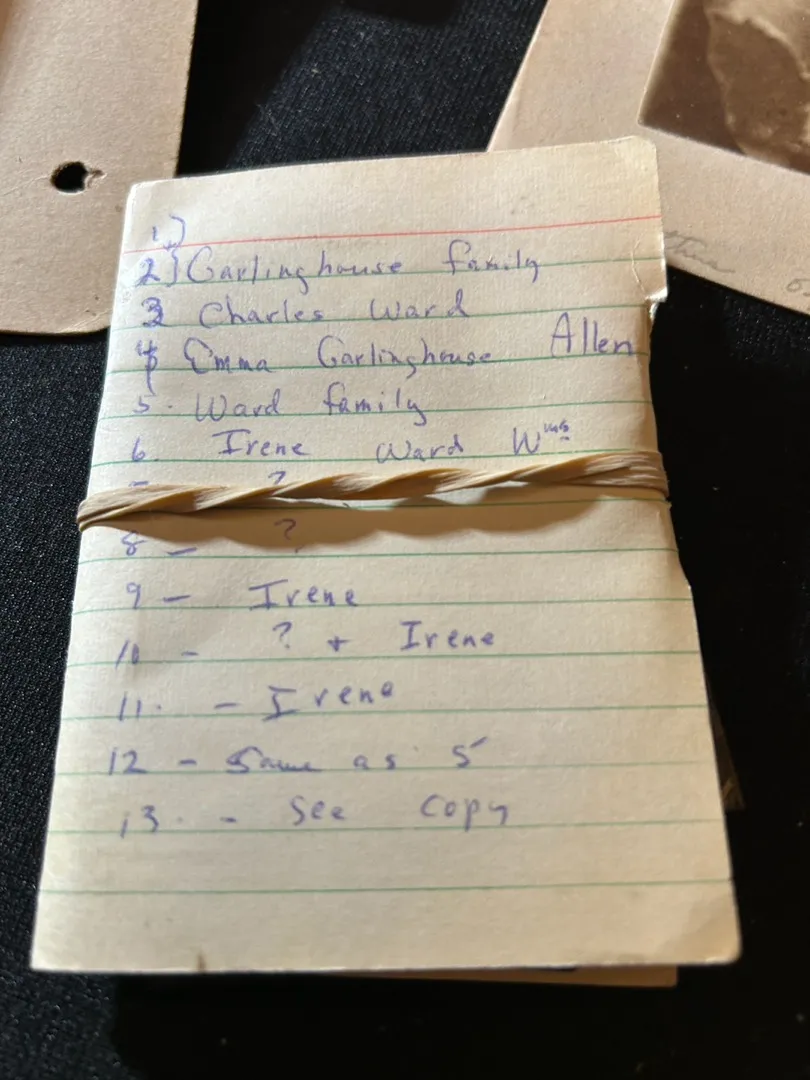 1)
2) Garlinghouse family
3 Charles Ward
4 Emma Garlinghouse Allen
5. Ward family
6. Irene Ward Wms
7 ?
8 - ?
9 - Irene
10 - ? + Irene
11. - Irene
12 - Same as 5
13. - See Copy